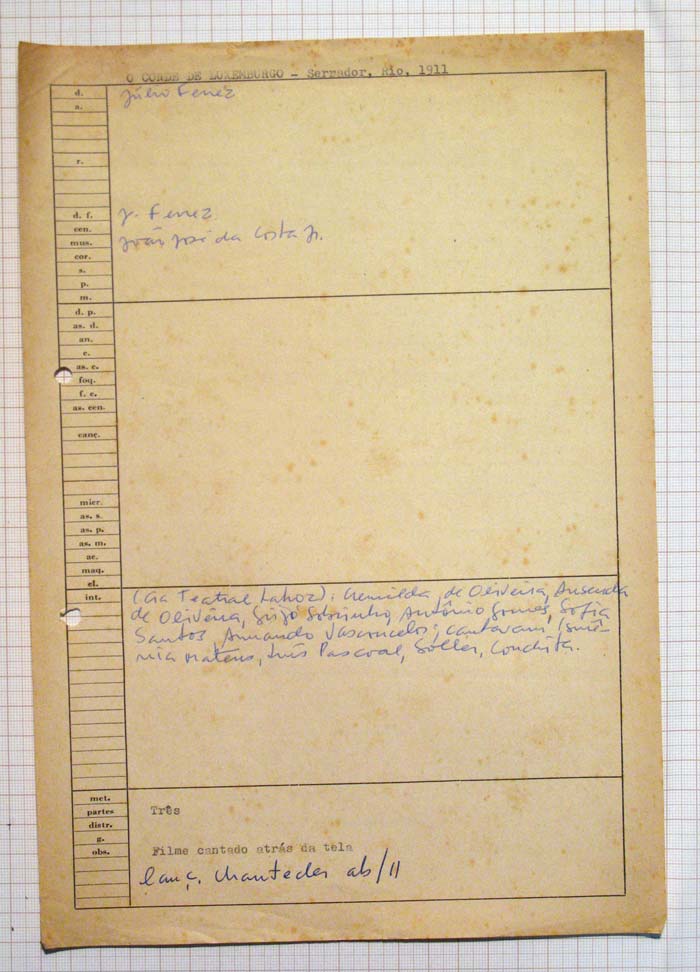 O CONDE DE LUXEMBURGO - Serrador, Rio, 1911
d. Júlio Ferrez
a.
r.
d. f. J. Ferrez
cen.
mus. João José da Costa Jr.
cor.
s.
p.
m.
d. p.
as. d.
an.
c.
as. c.
foq.
f. c.
as. cen.
canç.
micr.
as. s.
as. p.
as. m.
ae.
maq.
el.
int. (Cia Teatral Lahoz): Cremilda de Oliveira, Ausenda
de Oliveira, Grijó Sobrinho, Antônio Gomes, Sofia
Santos, Armando Vasconcelos; cantavam Ismê-
nia Mateus, Luís Pascoal, Soller, Conchita.
met.
partes Três
distr.
g.
obs. Filme cantado atrás da tela
lanç. Chantecler ab/11